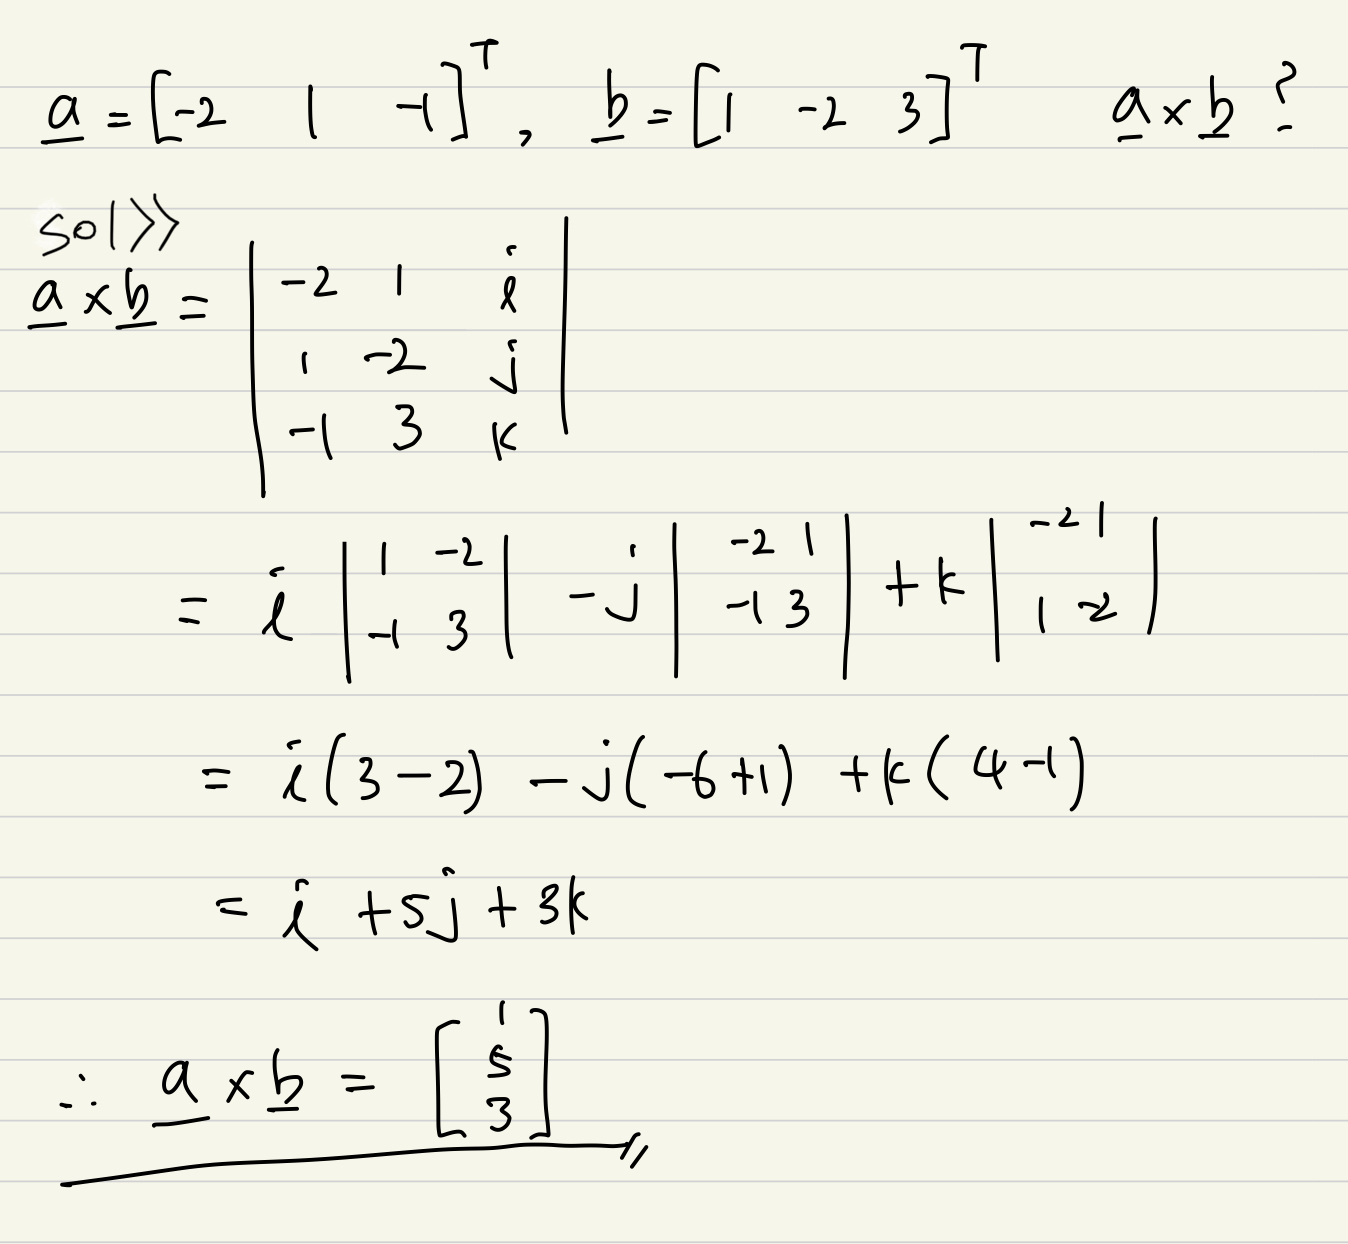 a = [-2 1 -1]^T , b = [1 -2 3]^T a × b ?
sol>>
a × b = | -2 1 i |
| 1 -2 j |
| -1 3 k |
= i | 1 -2 | - j | -2 1 | + k | -2 1 |
| -1 3 | | -1 3 | | 1 -2 |
= i(3-2) - j(-6+1) + k(4-1)
= i + 5j + 3k
∴ a × b = [ 1
5
3 ] //